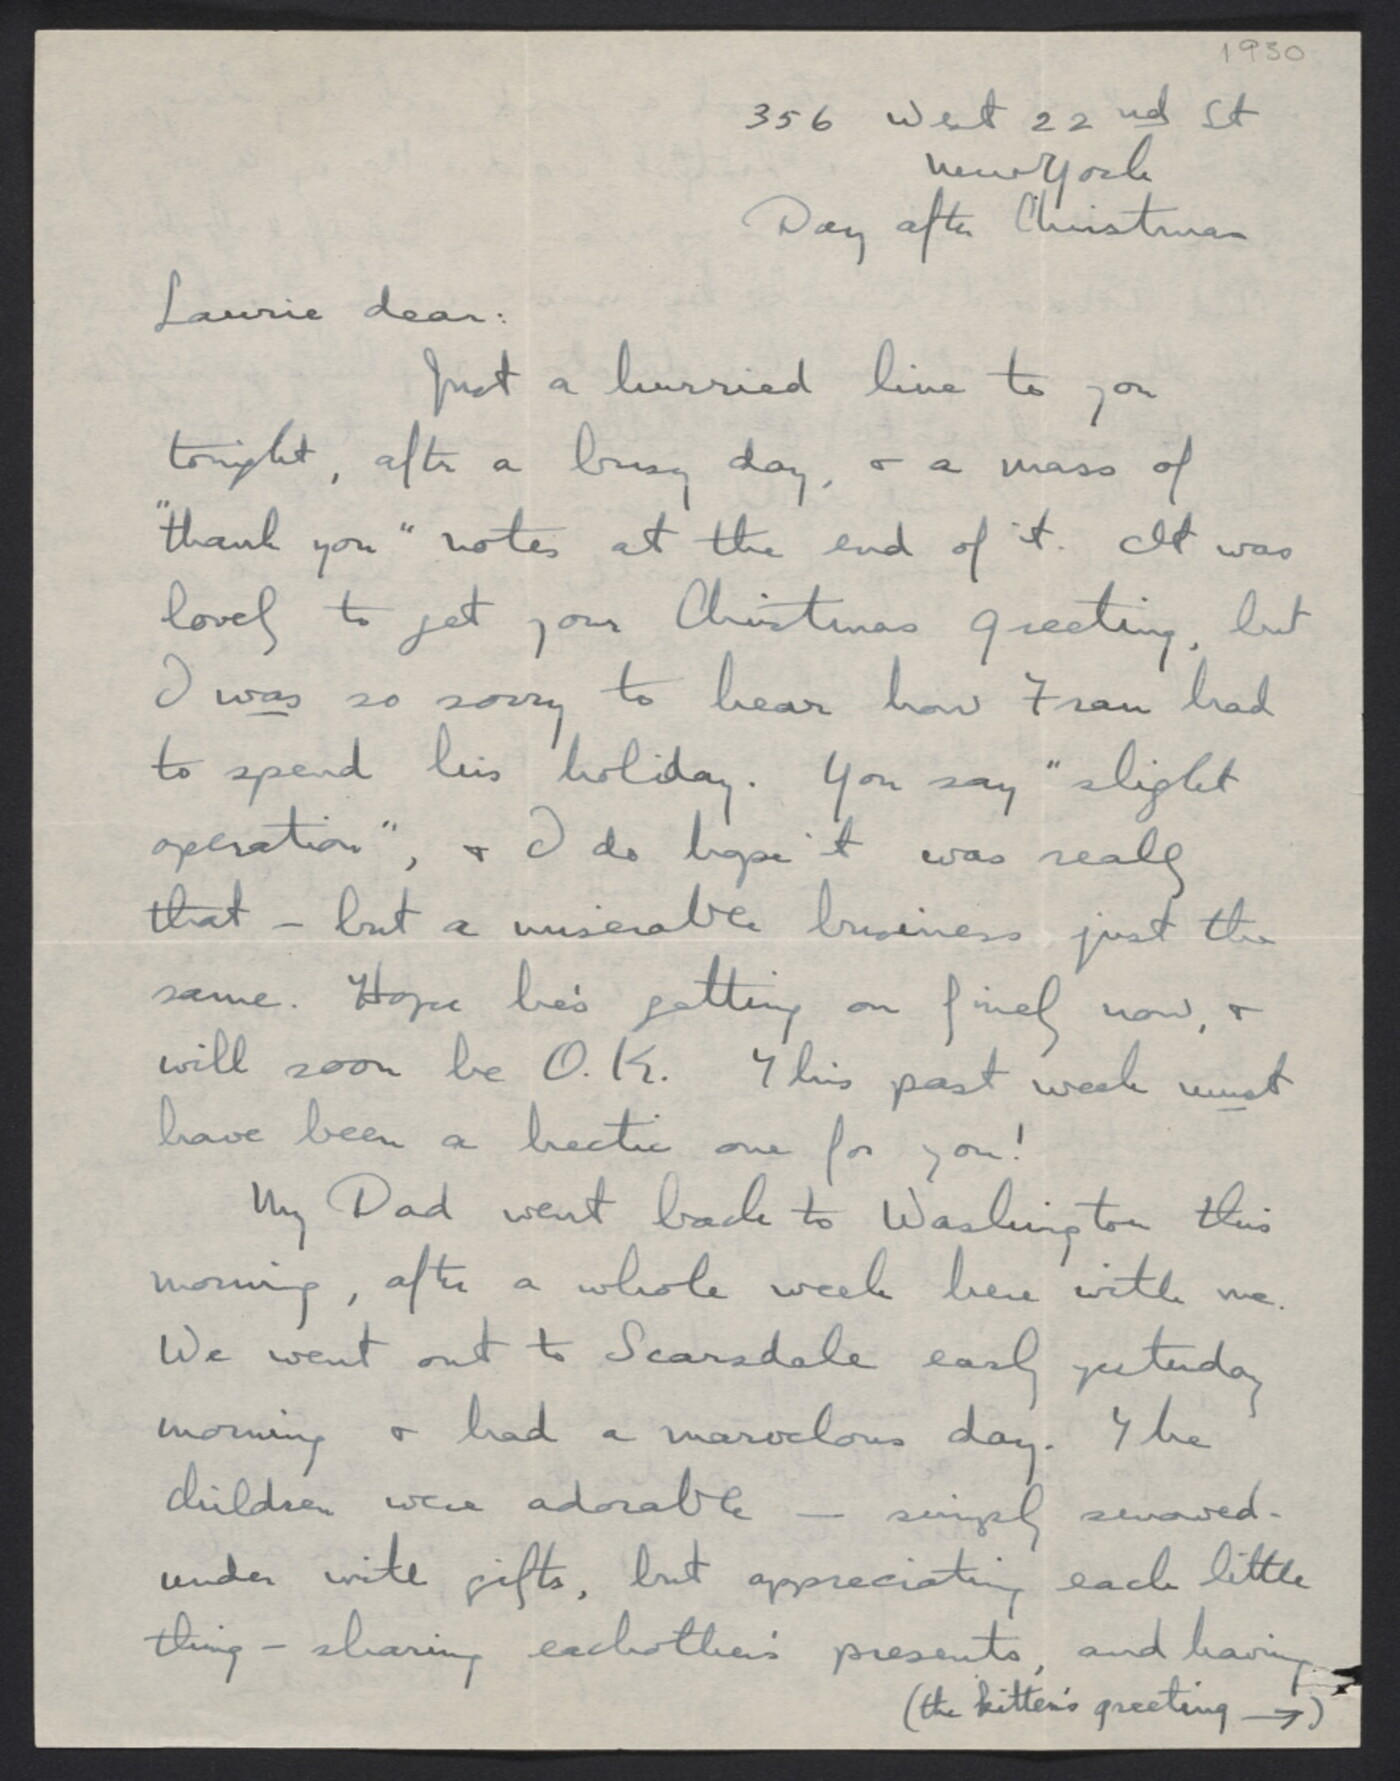 1930
356 West 22nd St
New York
Day after Christmas
Laurie dear:
Just a hurried line to you
tonight, after a busy day, & a mass of
"thank you" notes at the end of it. It was
lovely to get your Christmas greeting, but
I was so sorry to hear how Fran had
to spend his holiday. You say "slight
operation", & I do hope it was really
that – but a miserable business just the
same. Hope he's getting on finely now, &
will soon be O.K. This past week must
have been a hectic one for you!
My Dad went back to Washington this
morning, after a whole week here with me.
We went out to Scarsdale early yesterday
morning & had a marvelous day. The
children were adorable — simply snowed-
under with gifts, but appreciating each little
thing – sharing eachother's presents, and having
(the kitten's greeting →)